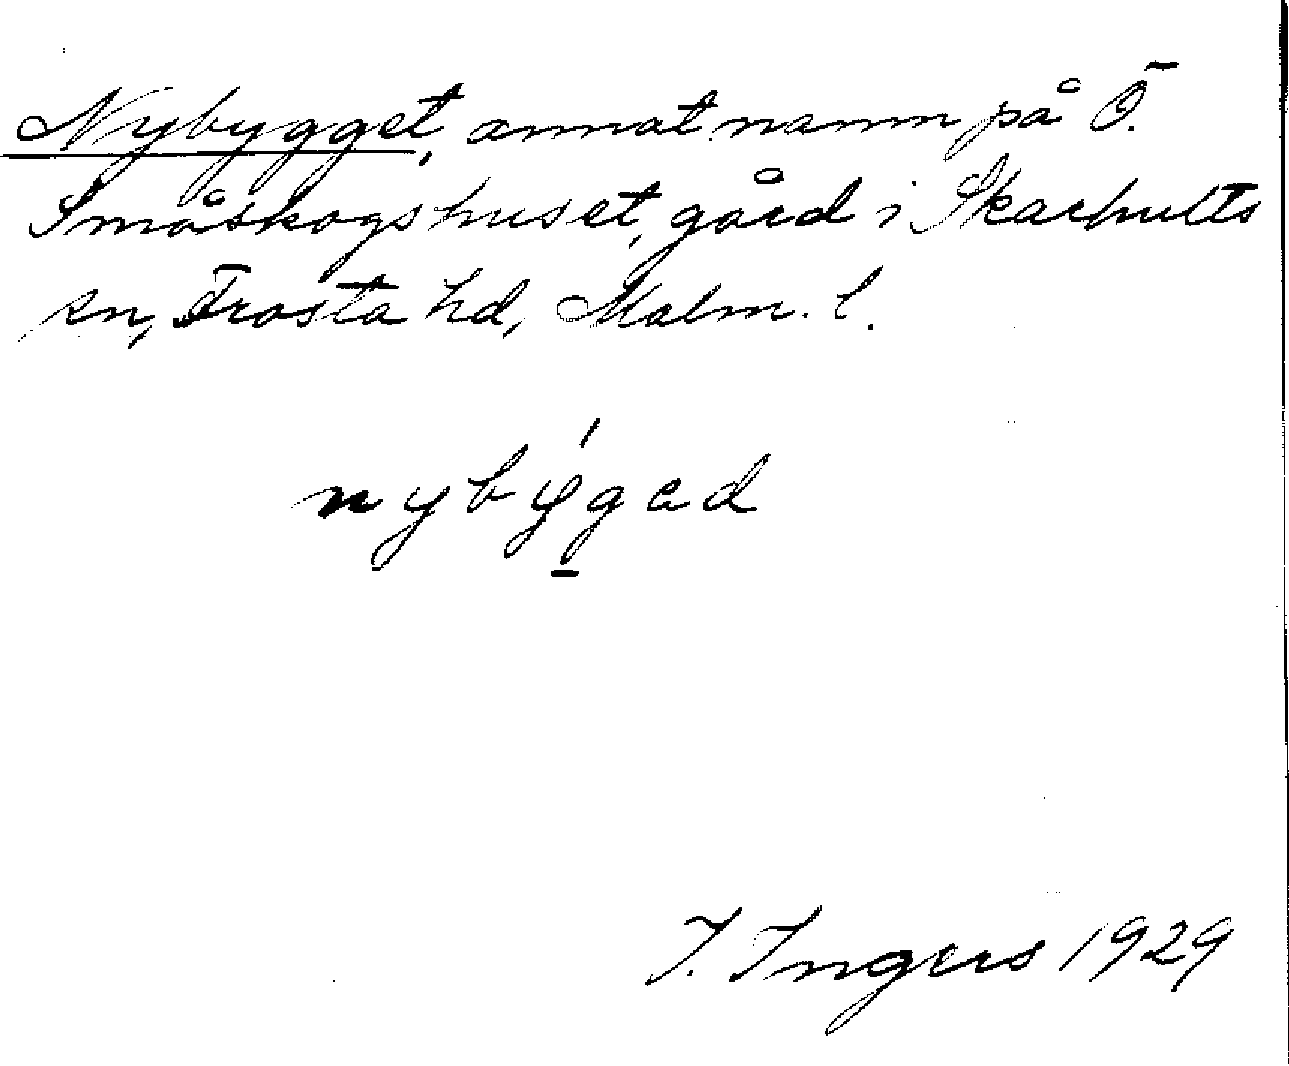 Nybygget, annat namn på Ö.
Småskogshuset, gård i Skarhults
sn, Frosta hd, Malm. l.
nybýgad
I. Ingers 1929